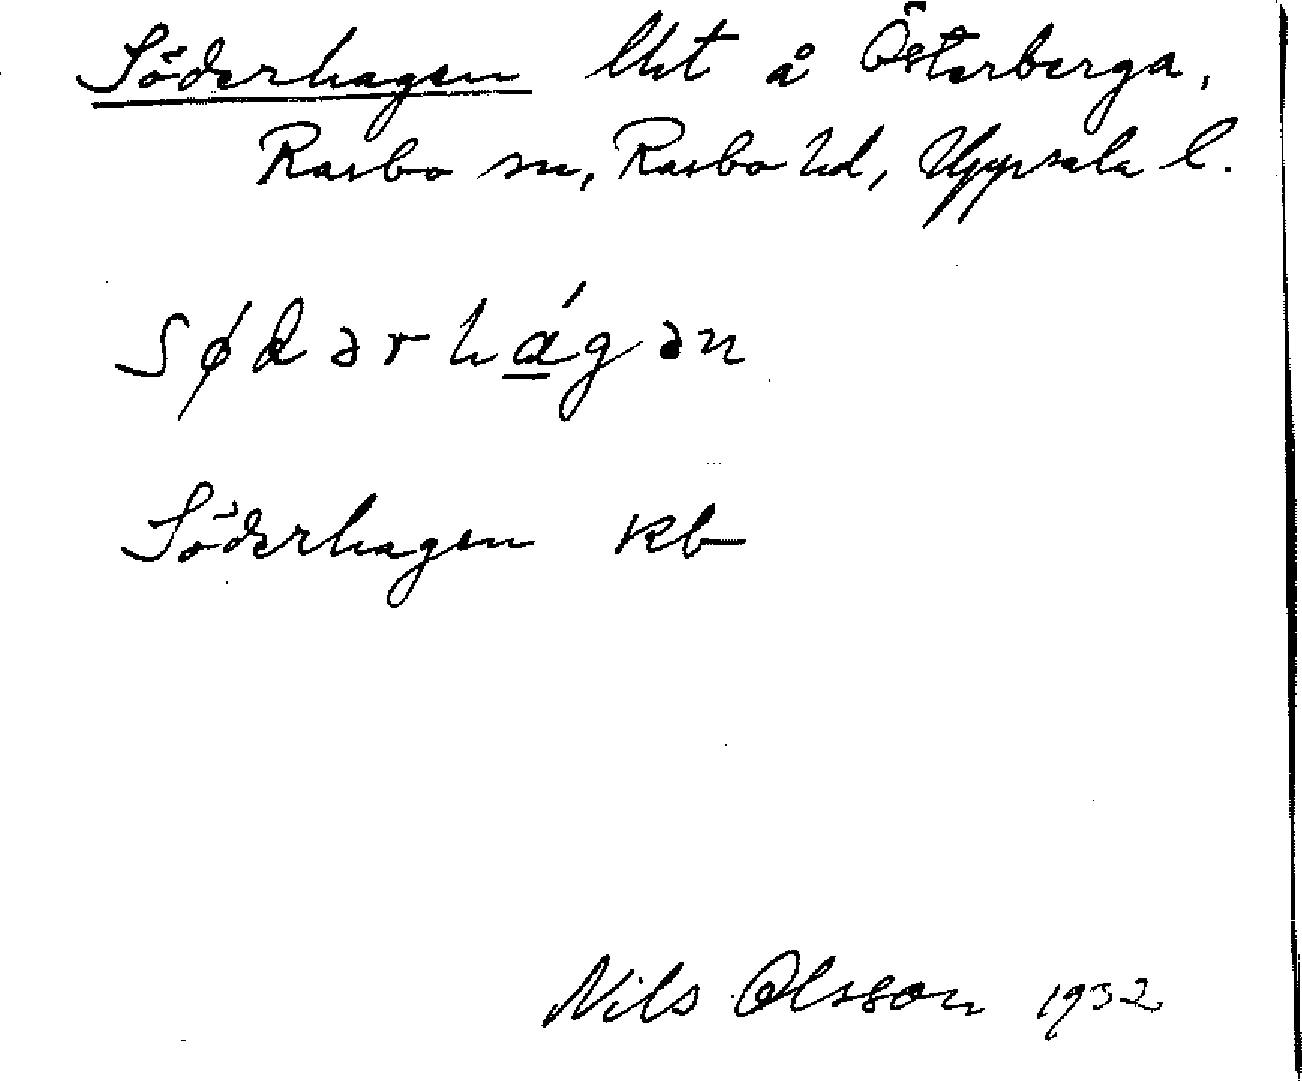 Söderhagen lht å Österberga,
Rasbo sn, Rasbo hd, Uppsala l.
sødərhágən
Söderhagen kb
Nils Olsson 1932